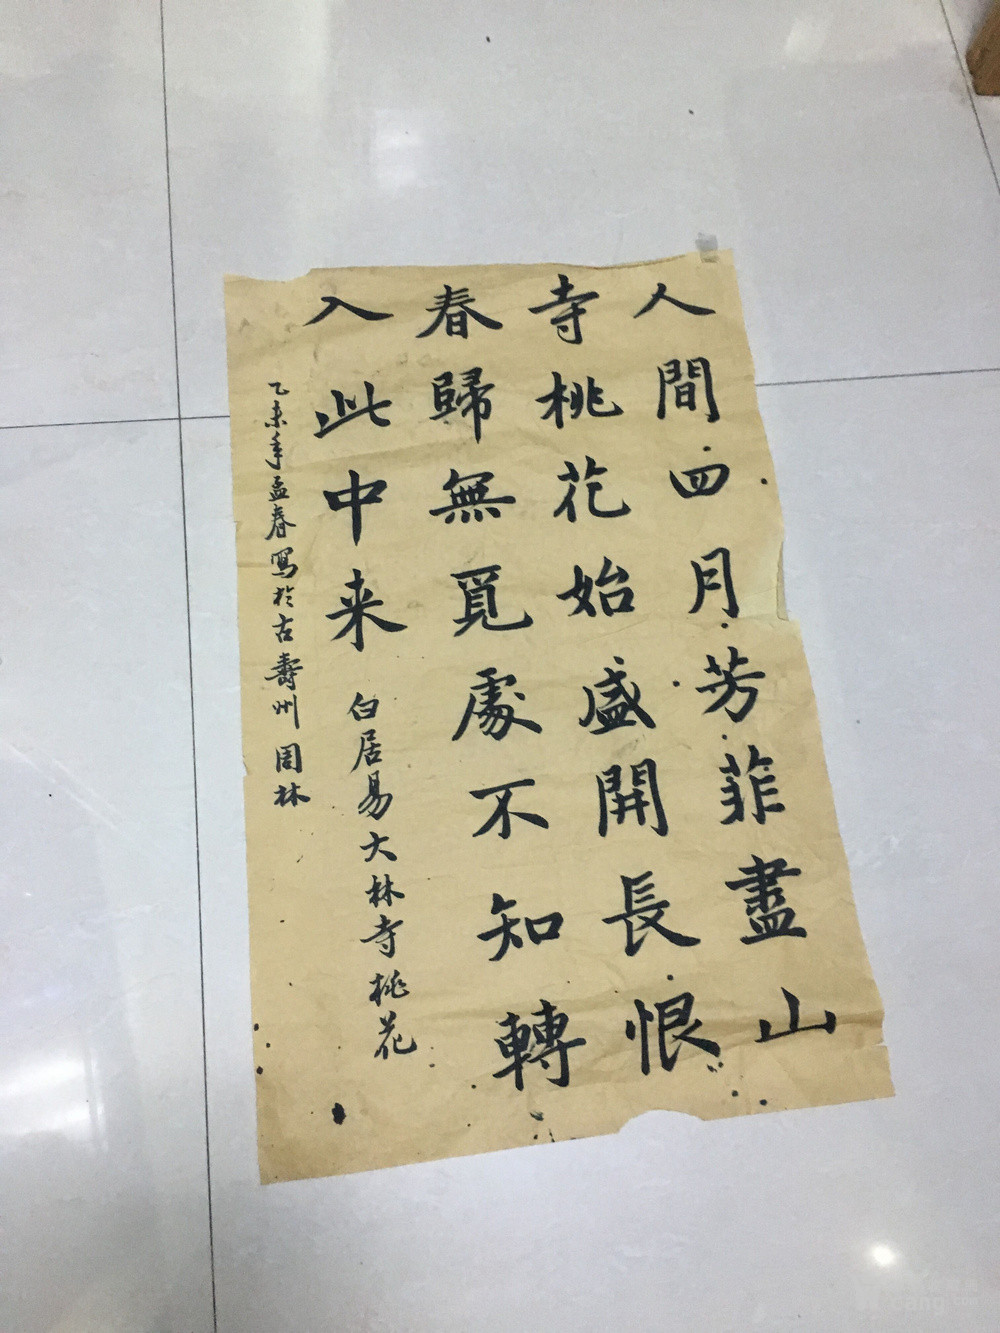 人間四月芳菲盡山
寺桃花始盛開長恨
春歸無覓處不知轉
入此中来
白居易大林寺桃花
乙未年孟春寫於古壽州周林